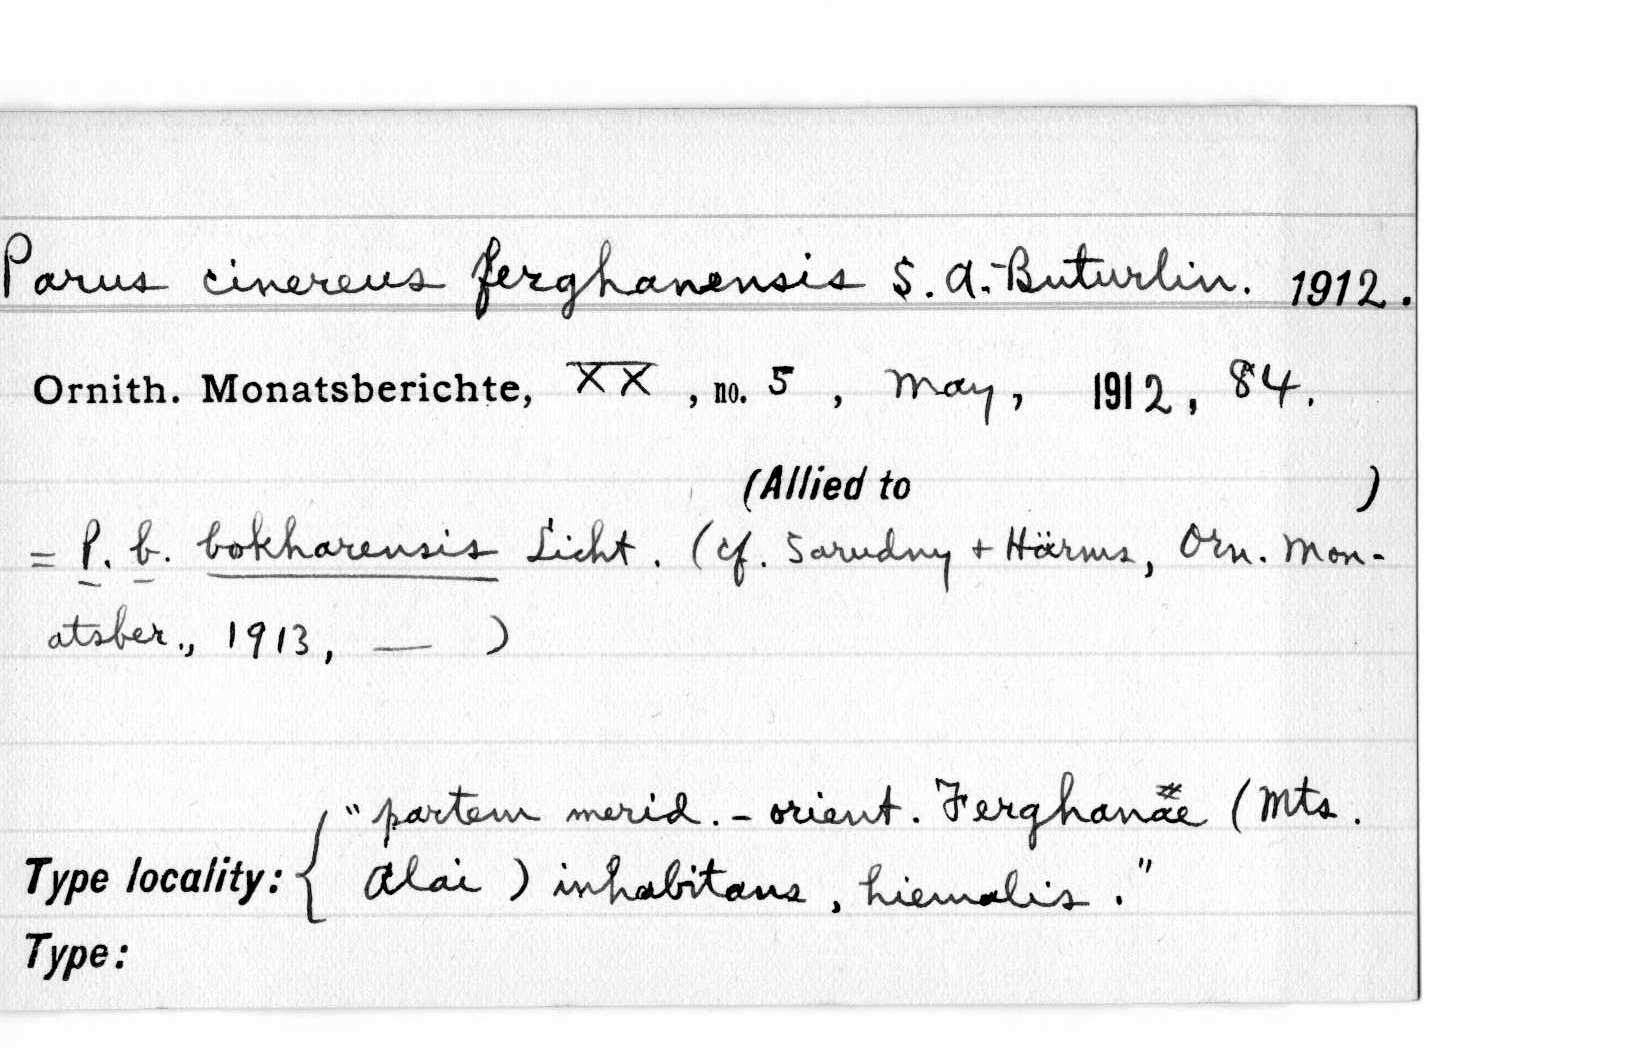 Parus cinereus ferghanensis S. A. Buturlin. 1912.
Ornith. Monatsberichte, XX, no. 5, May, 1912, 84.
(Allied to )
= P. b. bokharensis Licht. (cf. Sarudny + Härms, Orn. Mon-
atsber., 1913, — )
"partem merid. - orient. Ferghanæ (Mts.
Type locality: { Alai) inhabitans, hiemalis."
Type: